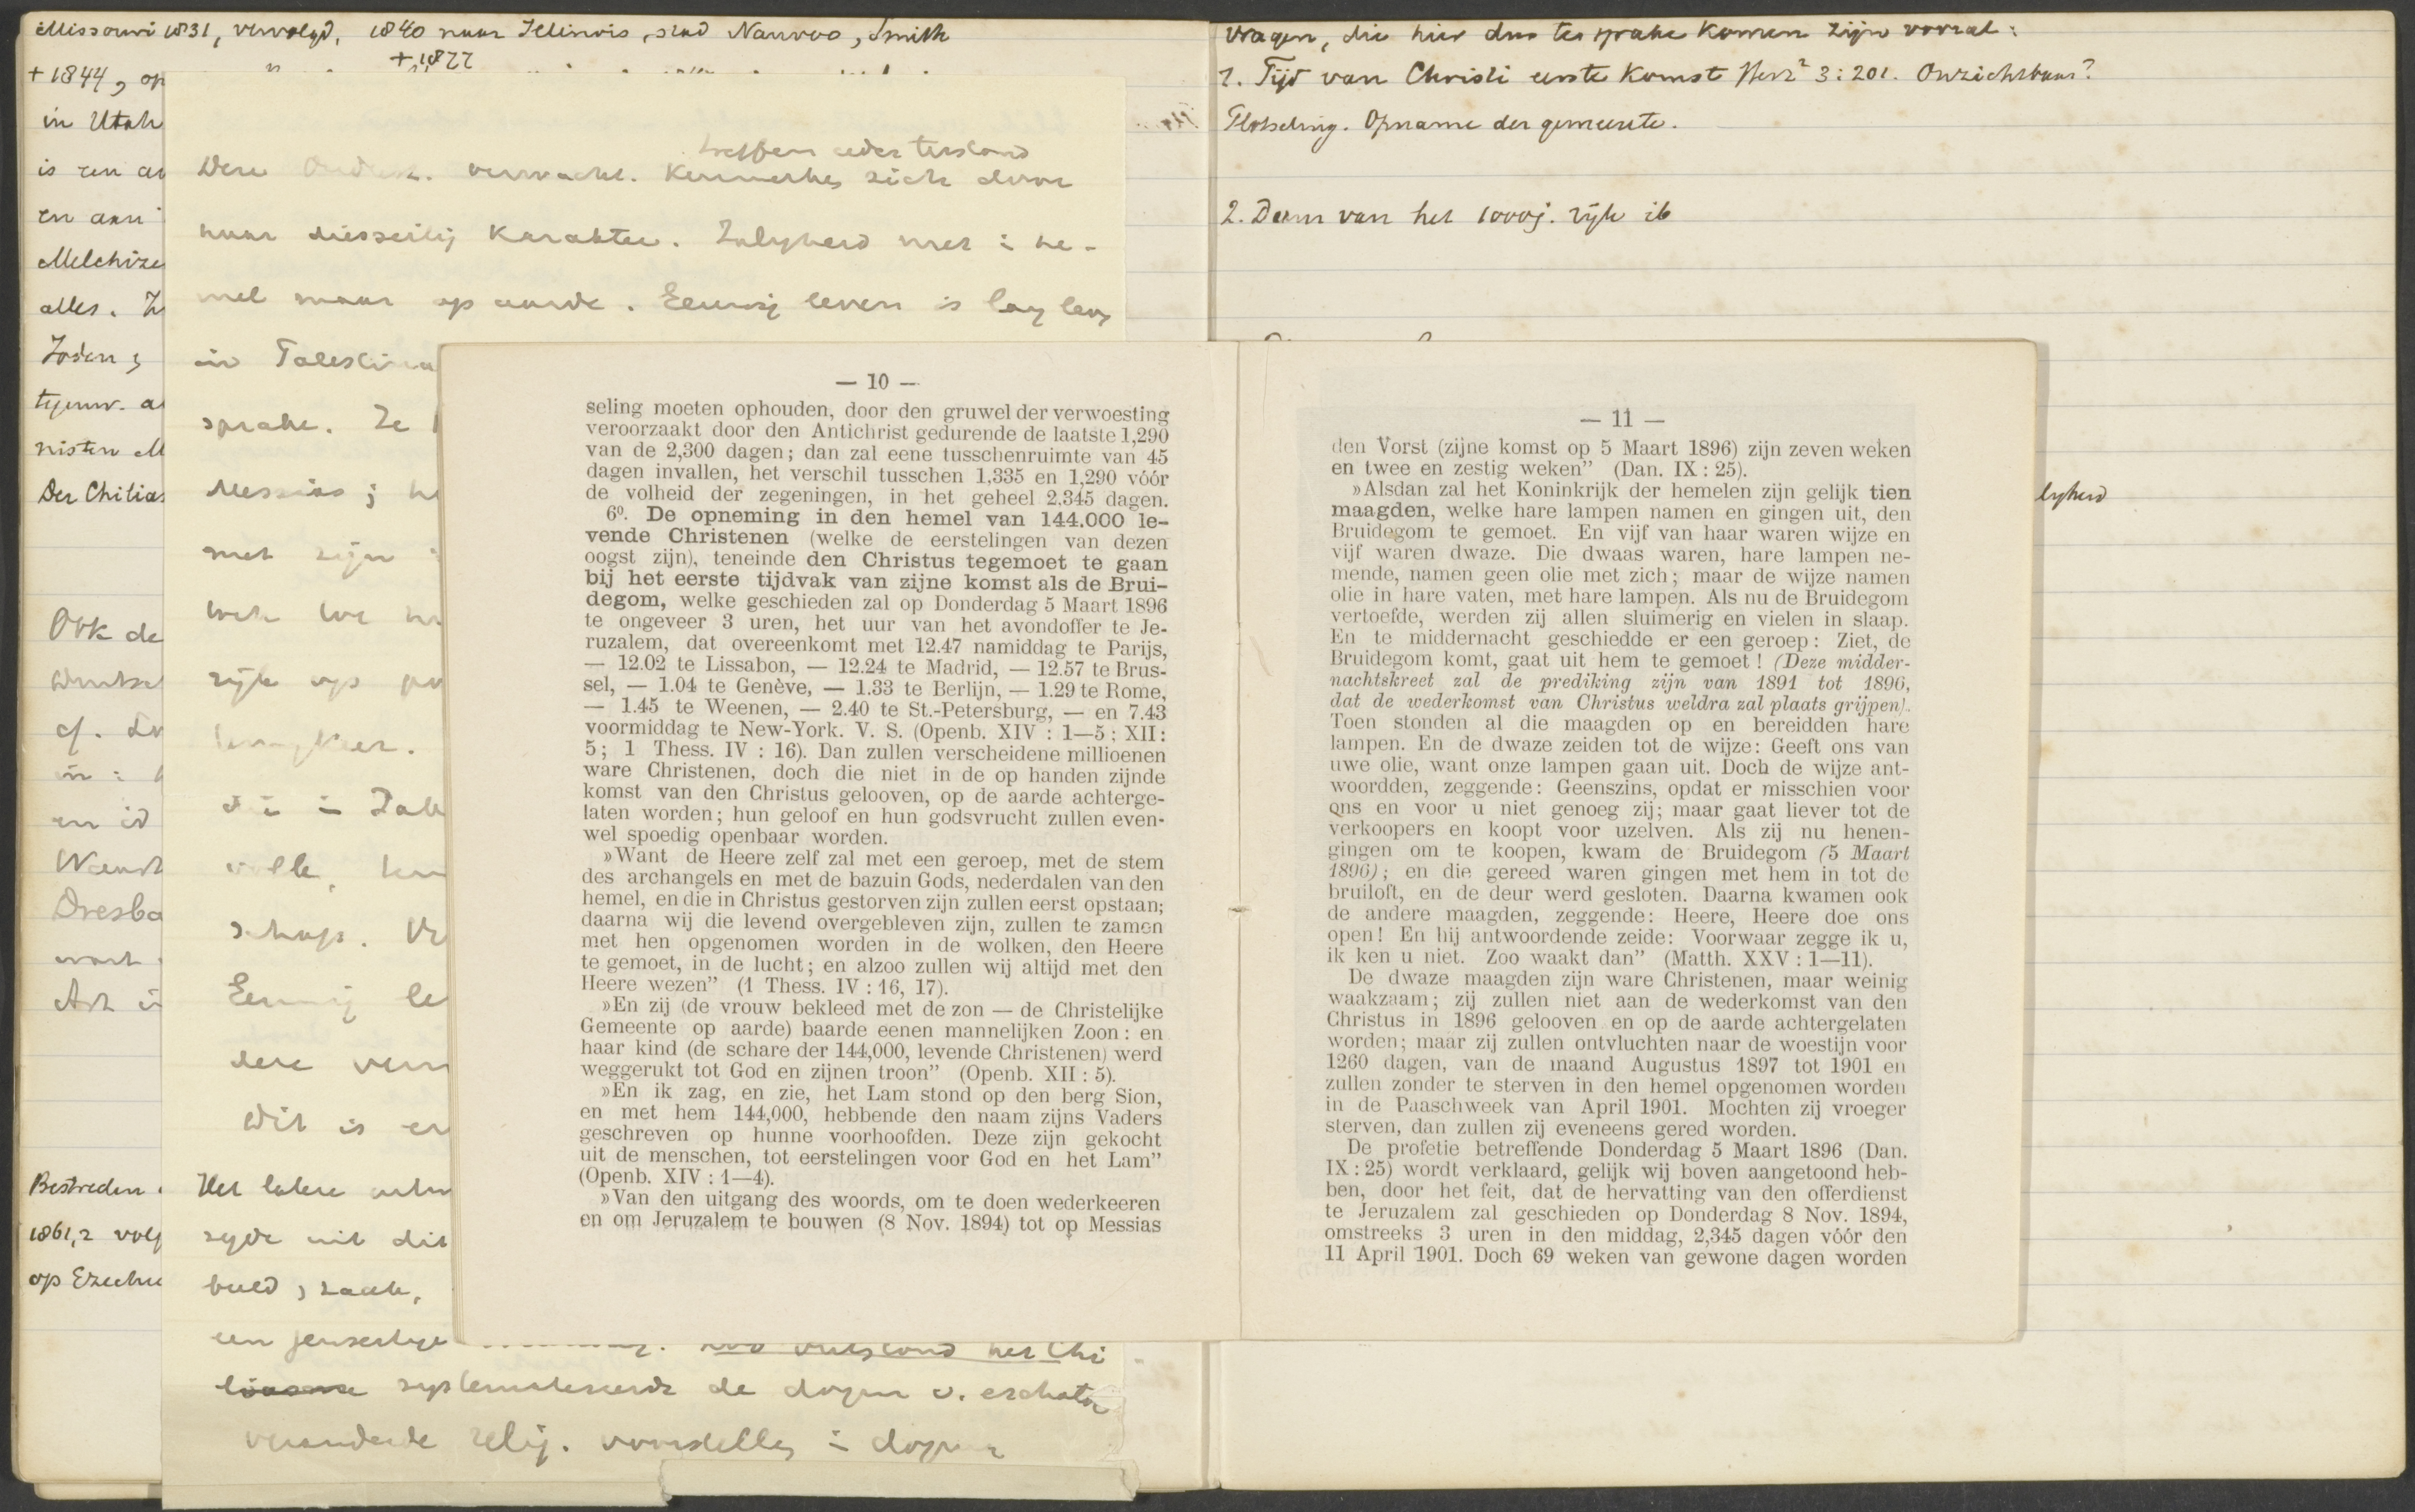 Missouri 1831, vervolgd, 1840 naar Illinois, stad Nauvoo, Smith
+ 1877
+ 1844, op
in Utah
is een
en aan
Melchize
alles.
Joden,
tegenw.
nisten M
Der Chilias
Ook de
cf.
en
Bestreden
1861,2 volg
op Ezechie
treffen ieder
Dere verwacht. Kenmerken zich door
haar diesseitig Karakter. Zaligheid niet in he-
mel maar op aarde. Eeuwig leven is lang leven
in Palestina
sprake. Ze
Messias;
met zijn
rijk op
volle,
schap.
Eeuwig le
dere verw
Dit is
Het latere
zijde uit dit
beeld, zaak,
een jenseitige
Zoo ontstond het Chi
systematiseerde de dogm. v. eschato
veranderde relig. voorstelling in dogma
vragen, die hier dus ter sprake komen zijn vooral:
1. Tijd van Christi eerste Komst Herz² 3:201. Onzichtbaar?
Plotseling. Opname der gemeente.
2. Duur van het 1000j. rijk ib
lijkheid
— 10 —
seling moeten ophouden, door den gruwel der verwoesting
veroorzaakt door den Antichrist gedurende de laatste 1,290
van de 2,300 dagen; dan zal eene tusschenruimte van 45
dagen invallen, het verschil tusschen 1,335 en 1,290 vóór
de volheid der zegeningen, in het geheel 2.345 dagen.
6º. De opneming in den hemel van 144.000 le-
vende Christenen (welke de eerstelingen van dezen
oogst zijn), teneinde den Christus tegemoet te gaan
bij het eerste tijdvak van zijne komst als de Brui-
degom, welke geschieden zal op Donderdag 5 Maart 1896
te ongeveer 3 uren, het uur van het avondoffer te Je-
ruzalem, dat overeenkomt met 12.47 namiddag te Parijs,
— 12.02 te Lissabon, — 12.24 te Madrid, — 12.57 te Brus-
sel, — 1.04 te Genève, — 1.33 te Berlijn, — 1.29 te Rome,
— 1.45 te Weenen, — 2.40 te St.-Petersburg, — en 7.43
voormiddag te New-York. V. S. (Openb. XIV : 1—5; XII:
5; 1 Thess. IV : 16). Dan zullen verscheidene millioenen
ware Christenen, doch die niet in de op handen zijnde
komst van den Christus gelooven, op de aarde achterge-
laten worden; hun geloof en hun godsvrucht zullen even-
wel spoedig openbaar worden.
»Want de Heere zelf zal met een geroep, met de stem
des archangels en met de bazuin Gods, nederdalen van den
hemel, en die in Christus gestorven zijn zullen eerst opstaan;
daarna wij die levend overgebleven zijn, zullen te zamen
met hen opgenomen worden in de wolken, den Heere
te gemoet, in de lucht; en alzoo zullen wij altijd met den
Heere wezen” (1 Thess. IV : 16, 17).
»En zij (de vrouw bekleed met de zon — de Christelijke
Gemeente op aarde) baarde eenen mannelijken Zoon: en
haar kind (de schare der 144,000, levende Christenen) werd
weggerukt tot God en zijnen troon” (Openb. XII : 5).
»En ik zag, en zie, het Lam stond op den berg Sion,
en met hem 144,000, hebbende den naam zijns Vaders
geschreven op hunne voorhoofden. Deze zijn gekocht
uit de menschen, tot eerstelingen voor God en het Lam”
(Openb. XIV : 1—4).
»Van den uitgang des woords, om te doen wederkeeren
en om Jeruzalem te bouwen (8 Nov. 1894) tot op Messias
— 11 —
den Vorst (zijne komst op 5 Maart 1896) zijn zeven weken
en twee en zestig weken” (Dan. IX : 25).
»Alsdan zal het Koninkrijk der hemelen zijn gelijk tien
maagden, welke hare lampen namen en gingen uit, den
Bruidegom te gemoet. En vijf van haar waren wijze en
vijf waren dwaze. Die dwaas waren, hare lampen ne-
mende, namen geen olie met zich; maar de wijze namen
olie in hare vaten, met hare lampen. Als nu de Bruidegom
vertoefde, werden zij allen sluimerig en vielen in slaap.
En te middernacht geschiedde er een geroep: Ziet, de
Bruidegom komt, gaat uit hem te gemoet! (Deze midder-
nachtskreet zal de prediking zijn van 1891 tot 1896,
dat de wederkomst van Christus weldra zal plaats grijpen).
Toen stonden al die maagden op en bereidden hare
lampen. En de dwaze zeiden tot de wijze: Geeft ons van
uwe olie, want onze lampen gaan uit. Doch de wijze ant-
woordden, zeggende: Geenszins, opdat er misschien voor
ons en voor u niet genoeg zij; maar gaat liever tot de
verkoopers en koopt voor uzelven. Als zij nu henen-
gingen om te koopen, kwam de Bruidegom (5 Maart
1896); en die gereed waren gingen met hem in tot de
bruiloft, en de deur werd gesloten. Daarna kwamen ook
de andere maagden, zeggende: Heere, Heere doe ons
open! En hij antwoordende zeide: Voorwaar zegge ik u,
ik ken u niet. Zoo waakt dan” (Matth. XXV : 1—11).
De dwaze maagden zijn ware Christenen, maar weinig
waakzaam; zij zullen niet aan de wederkomst van den
Christus in 1896 gelooven en op de aarde achtergelaten
worden; maar zij zullen ontvluchten naar de woestijn voor
1260 dagen, van de maand Augustus 1897 tot 1901 en
zullen zonder te sterven in den hemel opgenomen worden
in de Paaschweek van April 1901. Mochten zij vroeger
sterven, dan zullen zij eveneens gered worden.
De profetie betreffende Donderdag 5 Maart 1896 (Dan.
IX : 25) wordt verklaard, gelijk wij boven aangetoond heb-
ben, door het feit, dat de hervatting van den offerdienst
te Jeruzalem zal geschieden op Donderdag 8 Nov. 1894,
omstreeks 3 uren in den middag, 2,345 dagen vóór den
11 April 1901. Doch 69 weken van gewone dagen worden